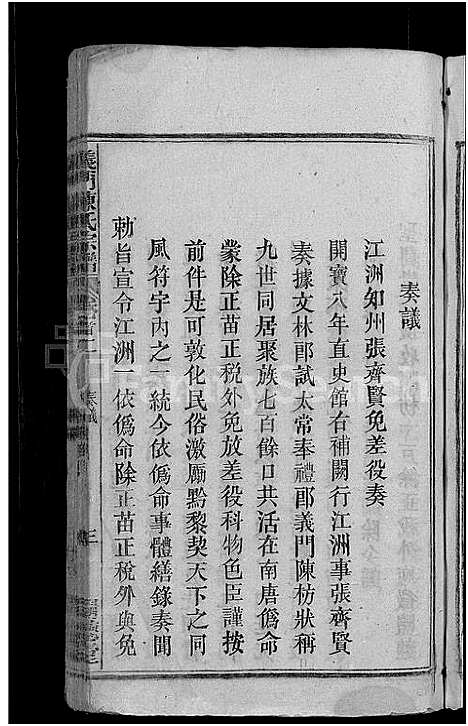 奏議
江洲知州張齊賢免差役奏
開寶八年直史館右補闕行江洲事張齊賢
奏據文林郎試太常奉禮郎義門陳枋狀稱
九世同居聚族七百餘口共活在南唐僞命
蒙除正苗正税外免放差役科物色臣謹按
前件是可敦化民俗激勵黔黎契天下之同
風符宇內之一統今依僞命事體繕錄奏聞
勅旨宣令江洲一依僞命除正苗正税外與免
義門陳氏宗譜
奏議
三